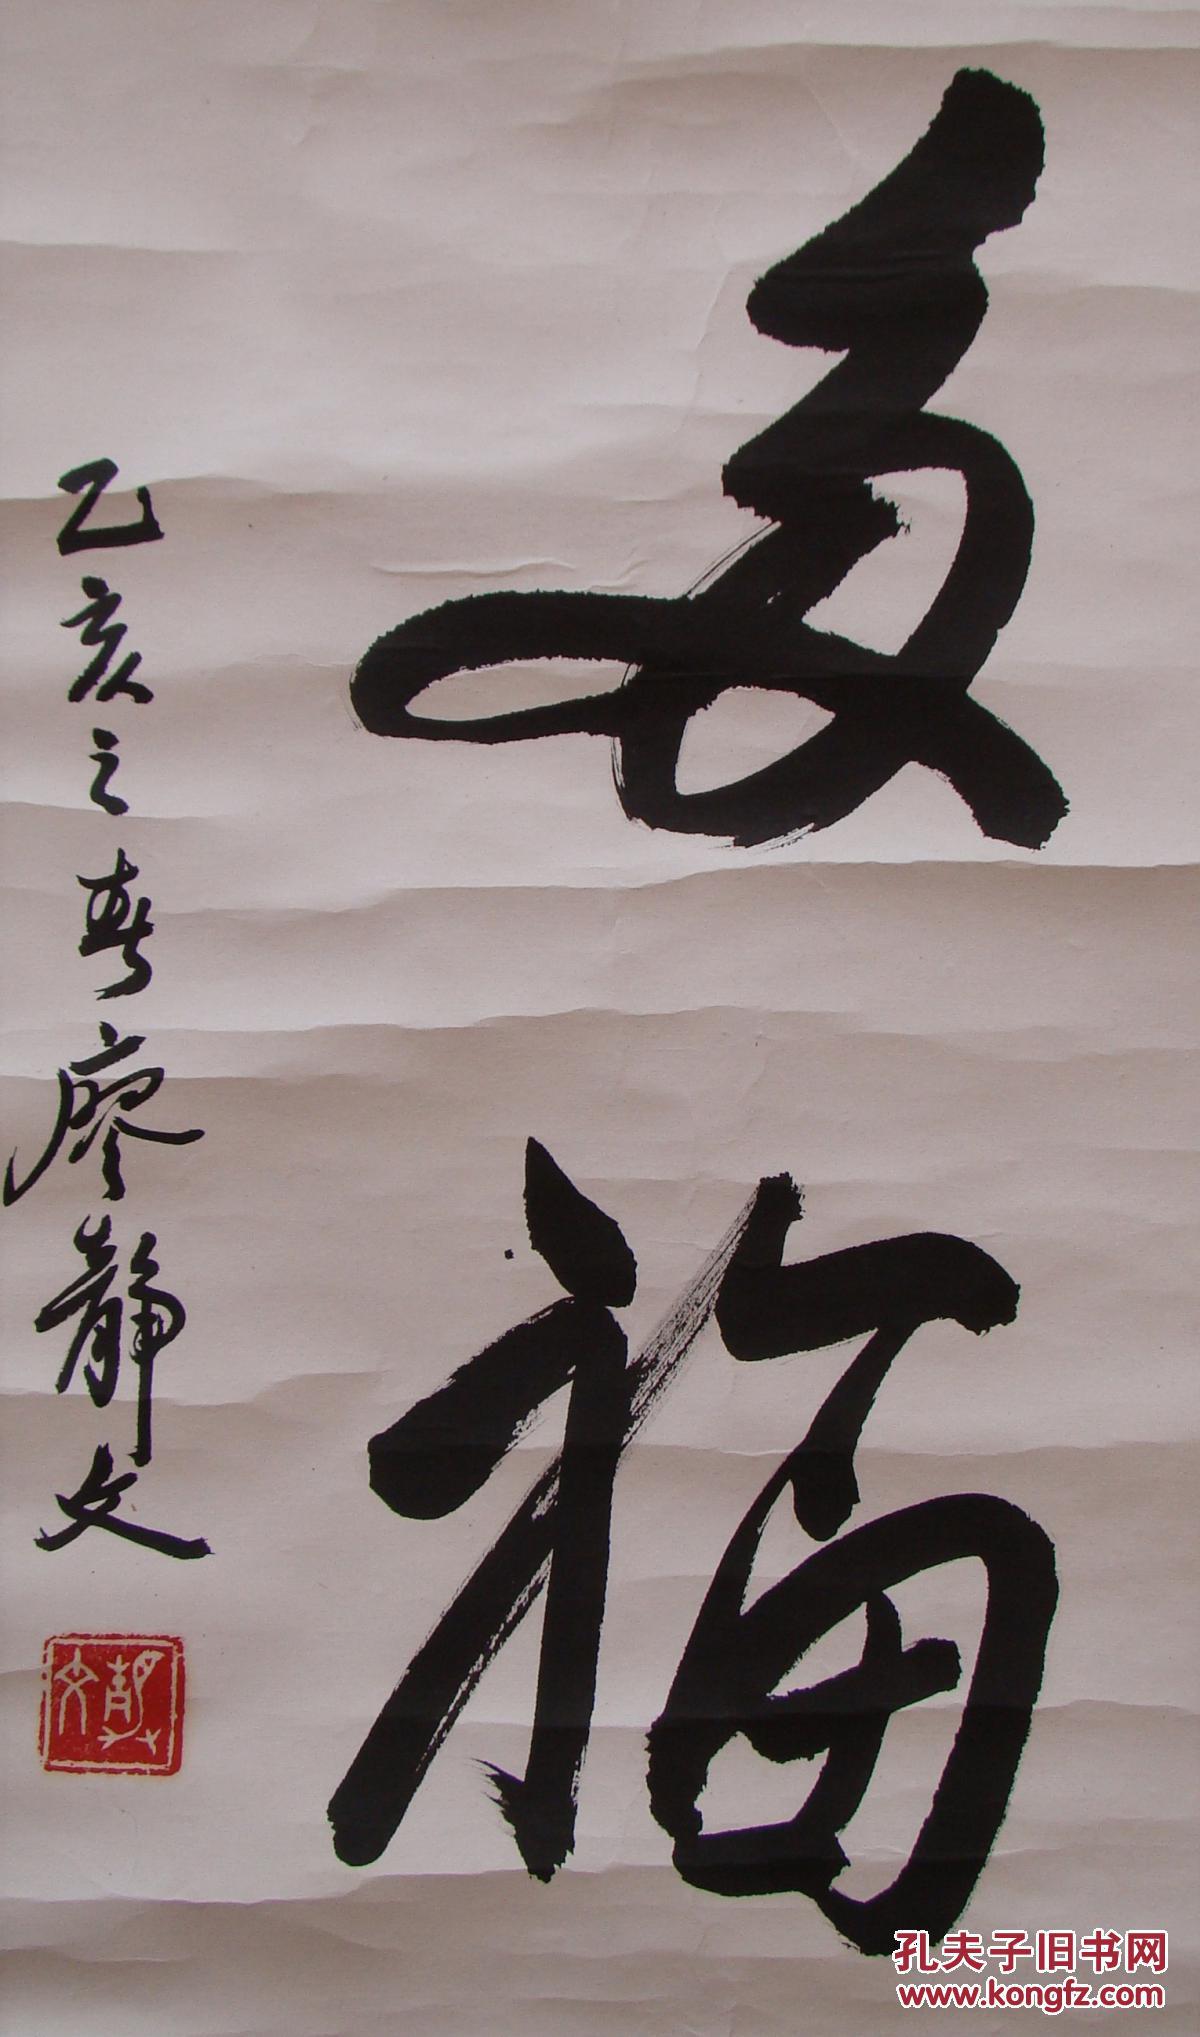 福
乙亥之春廖静文
静文
孔夫子旧书网
www.kongfz.com